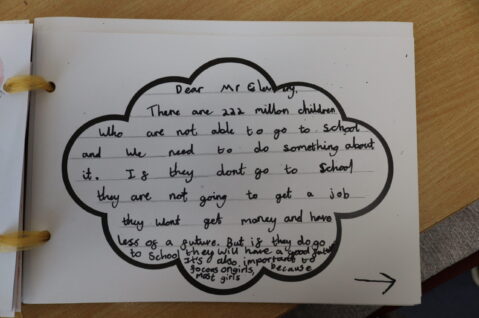 Dear Mr
There are 222 millon children
Who are not able to go to school
and we need to do something about
it. If they dont go to School
they are not going to get a job
they wont get money and have
less of a future. But if they do go
to School they will have a good future
It's also important to
focous on girls, because
most girls